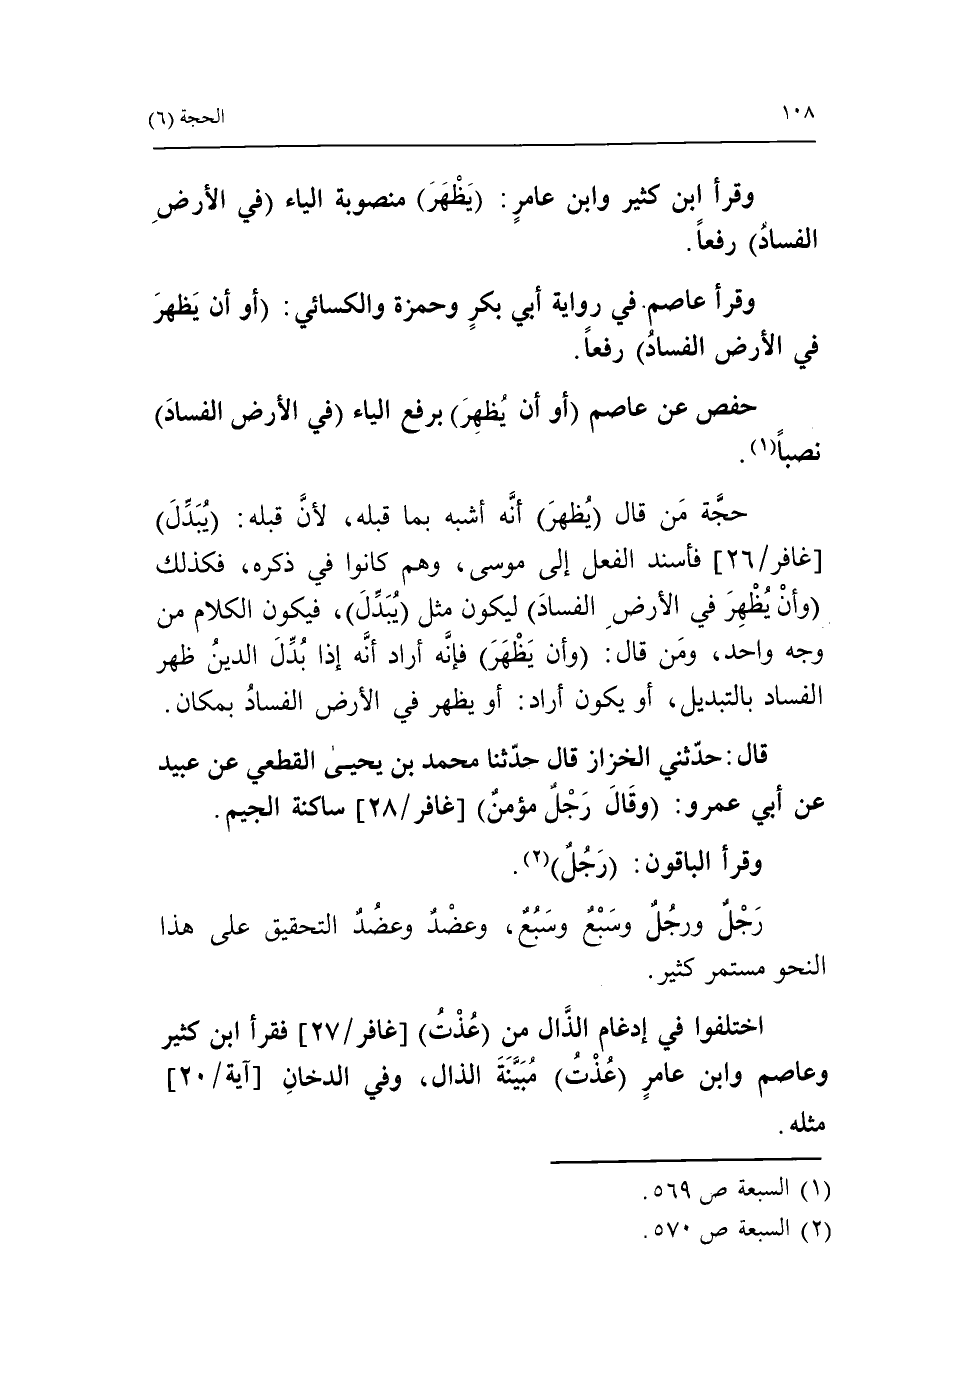 ١٠٨ الحجة (٦)
وقرأ ابن كثير وابن عامرٍ: (يَظْهَرَ) منصوبة الياء (في الأرضِ
الفسادُ) رفعاً.
وقرأ عاصم في رواية أبي بكرٍ وحمزة والكسائي: (أو أن يَظهرَ
في الأرض الفسادُ) رفعاً.
حفص عن عاصم (أو أن يُظهِرَ) برفع الياء (في الأرض الفسادَ)
نصباً(١).
حجَّة مَن قال (يُظهِرَ) أنَّه أشبه بما قبله، لأنَّ قبله: (يُبَدِّلَ)
[غافر/٢٦] فأسند الفعل إلى موسى، وهم كانوا في ذكره، فكذلك
(وأنْ يُظْهِرَ في الأرضِ الفسادَ) ليكون مثل (يُبَدِّلَ)، فيكون الكلام من
وجه واحد، ومَن قال: (وأن يَظْهَرَ) فإنَّه أراد أنَّه إذا بُدِّلَ الدينُ ظهر
الفساد بالتبديل، أو يكون أراد: أو يظهر في الأرض الفسادُ بمكان.
قال: حدّثني الخزاز قال حدّثنا محمد بن يحيىٰ القطعي عن عبيد
عن أبي عمرو: (وقَالَ رَجْلٌ مؤمنٌ) [غافر/٢٨] ساكنة الجيم.
وقرأ الباقون: (رَجُلٌ)(٢).
رَجْلٌ ورجُلٌ وسَبْعٌ وسَبُعٌ، وعضْدٌ وعضُدٌ التحقيق على هذا
النحو مستمر كثير.
اختلفوا في إدغام الذَّال من (عُذْتُ) [غافر/٢٧] فقرأ ابن كثير
وعاصم وابن عامرٍ (عُذْتُ) مُبَيَّنَةَ الذال، وفي الدخانِ [آية/٢٠]
مثله.
(١) السبعة ص ٥٦٩.
(٢) السبعة ص ٥٧٠.